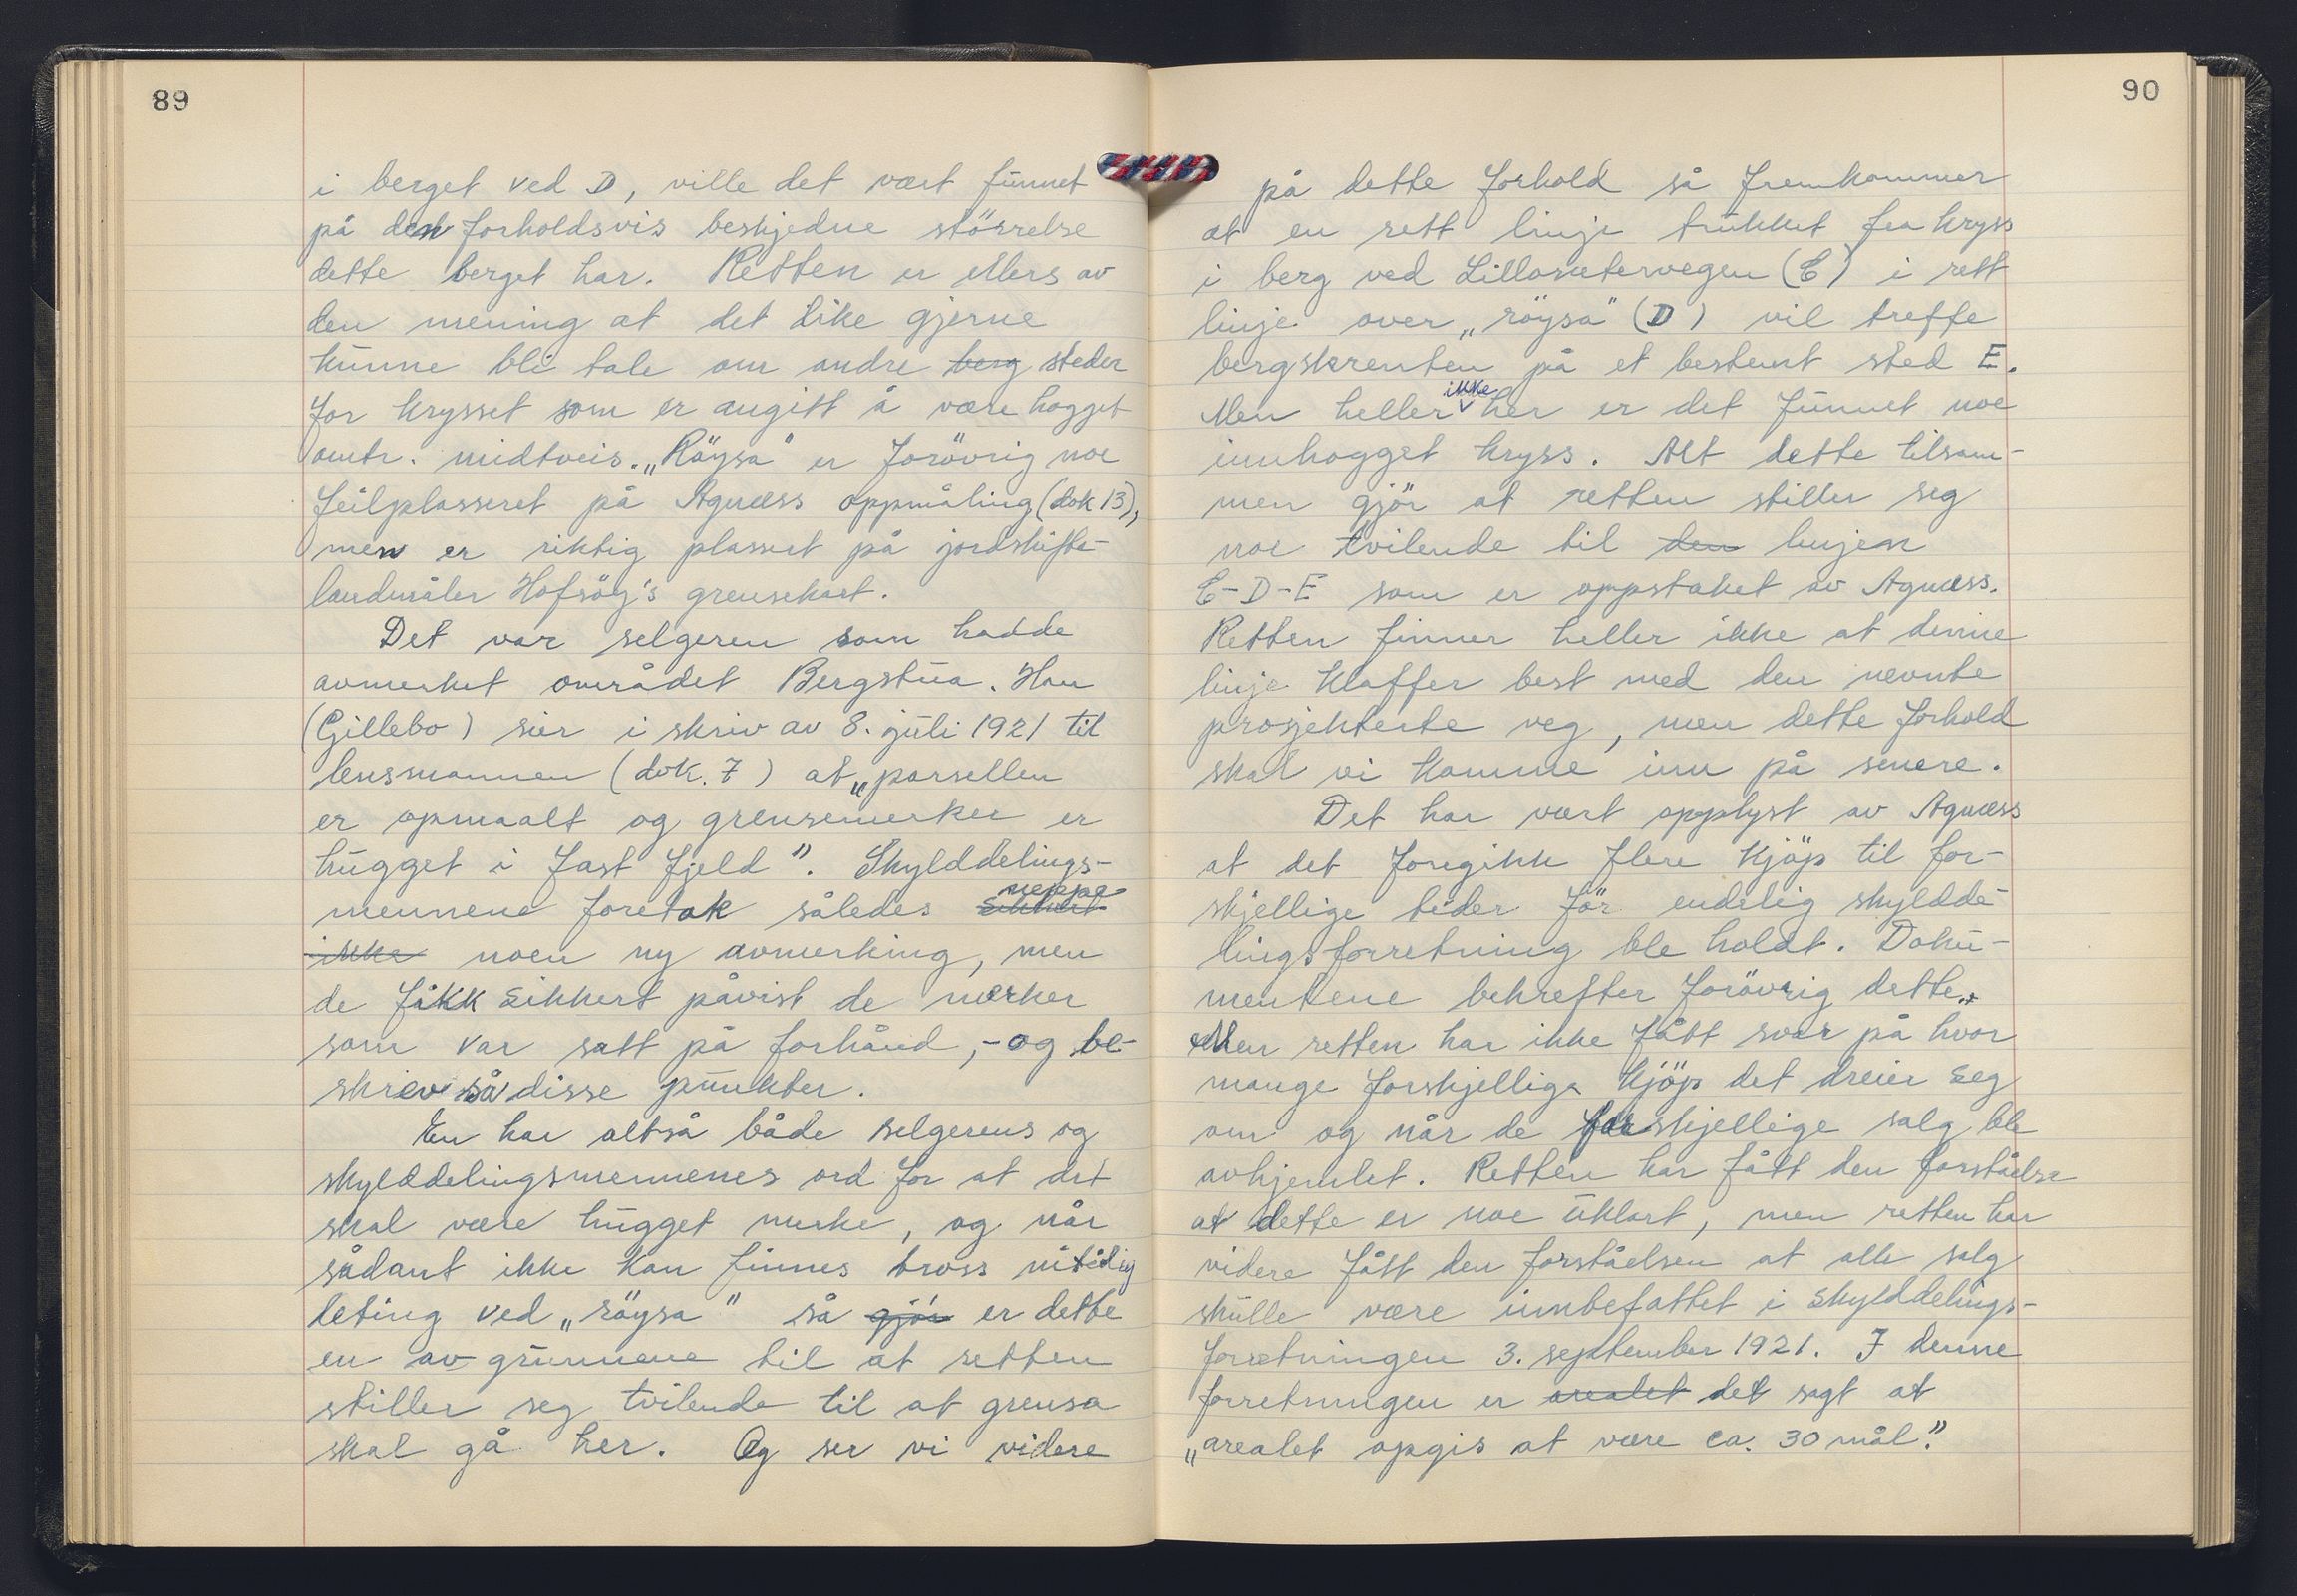 89
i berget ved D, ville det vært funnet
på den forholdsvis beskjedne störrelse
dette berget har. Retten er ellers av
den mening at det like gjerne
kunne bli tale om andre berg steder
for krysset som er angitt å være hogget
omtr. midtveis. „Röysa" er forövrig noe
feilplasseret på Agnæss oppmåling (dok 13),
men er riktig plassert på jordskifte-
landmåler Hofsöy's grensekart.
Det var selgeren som hadde
avmerket området Bergstua. Han
(Gillebo) sier i skriv av 8. juli 1921 til
lensmannen (dok. 7) at „parsellen
er opmaalt og grensemerker er
hugget i fast fjeld". Skylddelings-
mennene foretok således sikkert neppe
ikke noen ny avmerking, men
de fikk sikkert påvist de merker
som var satt på forhånd, - og be-
skrev så disse punkter.
En har altså både selgerens og
skylddelingsmennenes ord for at det
skal være hugget merke, og når
sådant ikke kan finnes tross iherdig
leting ved „röysa" så gjör er dette
en av grunnene til at retten
stiller seg tvilende til at grensa
skal gå her. Og ser vi videre
90
på dette forhold så fremkommer
at en rett linje trukket fra kryss
i berg ved Lillosetervegen (C) i rett
linje over „röysa" (D) vil treffe
bergskrenten på et bestemt sted E.
Men heller ikke her er det funnet noe
innhogget kryss. Alt dette tilsam-
men gjör at retten stiller seg
noe tvilende til den linjen
C-D-E som er oppstaket av Agnæss.
Retten finner heller ikke at denne
linje klaffer best med den nevnte
prosjekterte veg, men dette forhold
skal vi komme inn på senere.
Det har vært opplyst av Agnæss
at det foregikk flere kjöp til for-
skjellige tider för endelig skyldde-
lingsforretning ble holdt. Doku-
mentene bekrefter forövrig dette.
Men retten har ikke fått svar på hvor
mange forskjellige kjöp det dreier seg
om og når de forskjellige salg ble
avhjemlet. Retten har fått den forståelse
at dette er noe uklart, men retten har
videre fått den forståelsen at alle salg
skulle være innbefattet i skylddelings-
forretningen 3. september 1921. I denne
forretningen er arealet det sagt at
„arealet opgis at være ca. 30 mål."